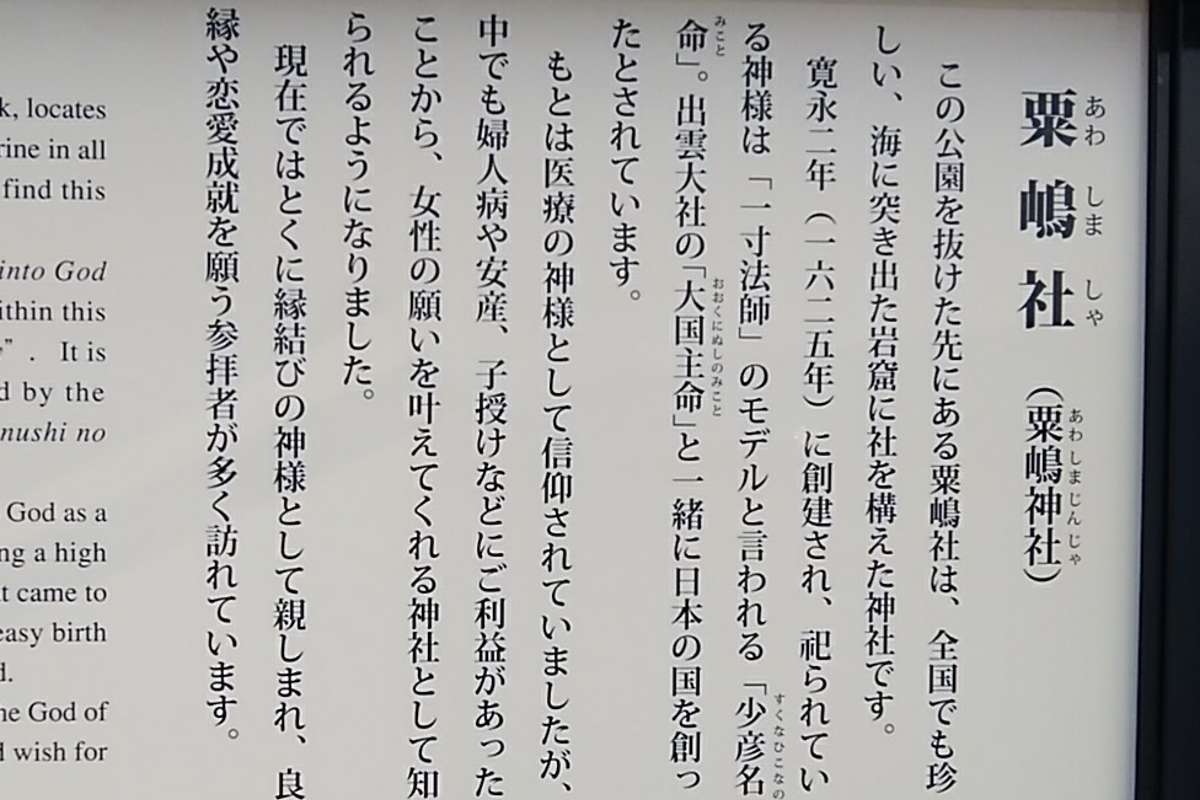 粟嶋社（粟嶋神社）
あわ しま しゃ
あわしまじんじゃ
この公園を抜けた先にある粟嶋社は、全国でも珍
しい、海に突き出た岩窟に社を構えた神社です。
寛永二年（一六二五年）に創建され、祀られてい
る神様は「一寸法師」のモデルと言われる「少彦名
すくなひこなの
命」。出雲大社の「大国主命」と一緒に日本の国を創っ
みこと
おおくにぬしのみこと
たとされています。
もとは医療の神様として信仰されていましたが、
中でも婦人病や安産、子授けなどにご利益があった
ことから、女性の願いを叶えてくれる神社として知
られるようになりました。
現在ではとくに縁結びの神様として親しまれ、良
縁や恋愛成就を願う参拝者が多く訪れています。
k, locates
rine in all
find this
into God
ithin this
". It is
d by the
nushi no
God as a
ng a high
t came to
easy birth
d.
he God of
d wish for